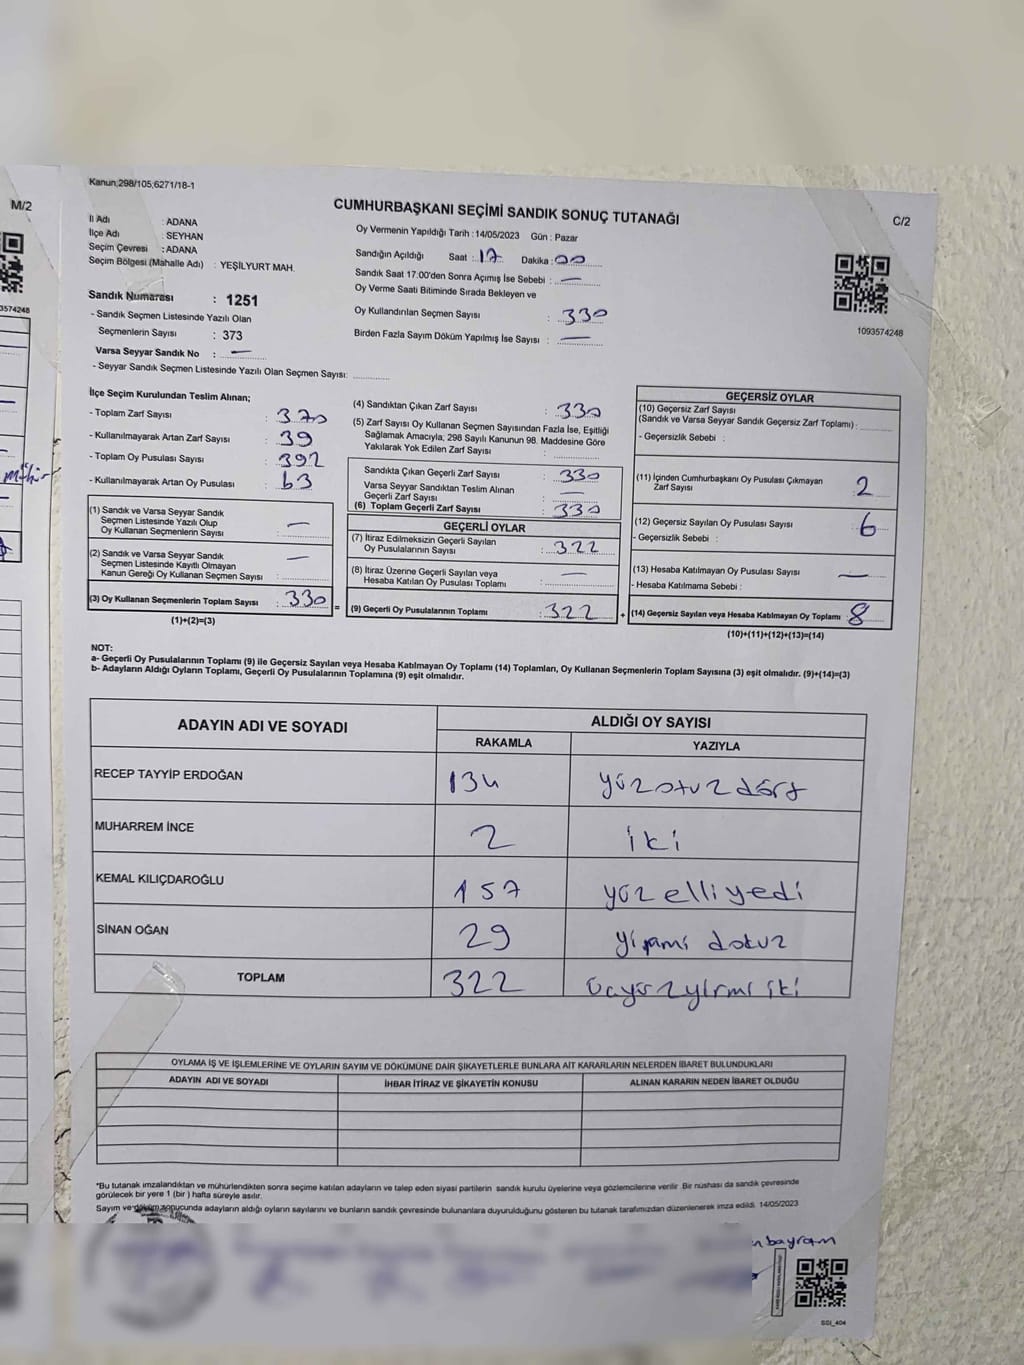 M/2
3574248
Kanun;298/105;6271/18-1
CUMHURBAŞKANI SEÇİMİ SANDIK SONUÇ TUTANAĞI
C/2
İl Adı : ADANA
İlçe Adı : SEYHAN
Seçim Çevresi : ADANA
Seçim Bölgesi (Mahalle Adı) : YEŞİLYURT MAH.
Sandık Numarası : 1251
- Sandık Seçmen Listesinde Yazılı Olan
Seçmenlerin Sayısı : 373
Varsa Seyyar Sandık No : —
- Seyyar Sandık Seçmen Listesinde Yazılı Olan Seçmen Sayısı:
Oy Vermenin Yapıldığı Tarih : 14/05/2023 Gün : Pazar
Sandığın Açıldığı Saat : 17 Dakika : 00
Sandık Saat 17:00'den Sonra Açımış İse Sebebi : —
Oy Verme Saati Bitiminde Sırada Bekleyen ve
Oy Kullandırılan Seçmen Sayısı : 330
Birden Fazla Sayım Döküm Yapılmış İse Sayısı : —
1093574248
İlçe Seçim Kurulundan Teslim Alınan;
- Toplam Zarf Sayısı : 370
- Kullanılmayarak Artan Zarf Sayısı : 39
- Toplam Oy Pusulası Sayısı : 392
- Kullanılmayarak Artan Oy Pusulası : 63
(1) Sandık ve Varsa Seyyar Sandık
Seçmen Listesinde Yazılı Olup
Oy Kullanan Seçmenlerin Sayısı : —
(2) Sandık ve Varsa Seyyar Sandık
Seçmen Listesinde Kayıtlı Olmayan
Kanun Gereği Oy Kullanan Seçmen Sayısı : —
(3) Oy Kullanan Seçmenlerin Toplam Sayısı : 330 =
(1)+(2)=(3)
(4) Sandıktan Çıkan Zarf Sayısı : 330
(5) Zarf Sayısı Oy Kullanan Seçmen Sayısından Fazla İse, Eşitliği
Sağlamak Amacıyla; 298 Sayılı Kanunun 98. Maddesine Göre
Yakılarak Yok Edilen Zarf Sayısı :
Sandıkta Çıkan Geçerli Zarf Sayısı : 330
Varsa Seyyar Sandıktan Teslim Alınan
Geçerli Zarf Sayısı : —
(6) Toplam Geçerli Zarf Sayısı : 330
GEÇERLİ OYLAR
(7) İtiraz Edilmeksizin Geçerli Sayılan
Oy Pusulalarının Sayısı : 322
(8) İtiraz Üzerine Geçerli Sayılan veya
Hesaba Katılan Oy Pusulası Toplamı : —
(9) Geçerli Oy Pusulalarının Toplamı : 322 +
GEÇERSİZ OYLAR
(10) Geçersiz Zarf Sayısı
(Sandık ve Varsa Seyyar Sandık Geçersiz Zarf Toplamı) :
- Geçersizlik Sebebi :
(11) İçinden Cumhurbaşkanı Oy Pusulası Çıkmayan
Zarf Sayısı 2
(12) Geçersiz Sayılan Oy Pusulası Sayısı 6
- Geçersizlik Sebebi :
(13) Hesaba Katılmayan Oy Pusulası Sayısı —
- Hesaba Katılmama Sebebi :
(14) Geçersiz Sayılan veya Hesaba Katılmayan Oy Toplamı : 8
(10)+(11)+(12)+(13)=(14)
NOT:
a- Geçerli Oy Pusulalarının Toplamı (9) ile Geçersiz Sayılan veya Hesaba Katılmayan Oy Toplamı (14) Toplamları, Oy Kullanan Seçmenlerin Toplam Sayısına (3) eşit olmalıdır. (9)+(14)=(3)
b- Adayların Aldığı Oyların Toplamı, Geçerli Oy Pusulalarının Toplamına (9) eşit olmalıdır.
ADAYIN ADI VE SOYADI ALDIĞI OY SAYISI
RAKAMLA YAZIYLA
RECEP TAYYİP ERDOĞAN 134 yüzotuzdört
MUHARREM İNCE 2 iki
KEMAL KILIÇDAROĞLU 157 yüz elli yedi
SİNAN OĞAN 29 yirmi dokuz
TOPLAM 322 üçyüzyirmi iki
OYLAMA İŞ VE İŞLEMLERİNE VE OYLARIN SAYIM VE DÖKÜMÜNE DAİR ŞİKAYETLERLE BUNLARA AİT KARARLARIN NELERDEN İBARET BULUNDUKLARI
ADAYIN ADI VE SOYADI İHBAR İTİRAZ VE ŞİKAYETİN KONUSU ALINAN KARARIN NEDEN İBARET OLDUĞU
*Bu tutanak imzalandıktan ve mühürlendikten sonra seçime katılan adayların ve talep eden siyasi partilerin sandık kurulu üyelerine veya gözlemcilerine verilir. Bir nüshası da sandık çevresinde
görülecek bir yere 1 (bir ) hafta süreyle asılır.
Sayım ve döküm sonucunda adayların aldığı oyların sayılarını ve bunların sandık çevresinde bulunanlara duyurulduğunu gösteren bu tutanak tarafımızdan düzenlenerek imza edildi. 14/05/2023
bayram
SSI_404